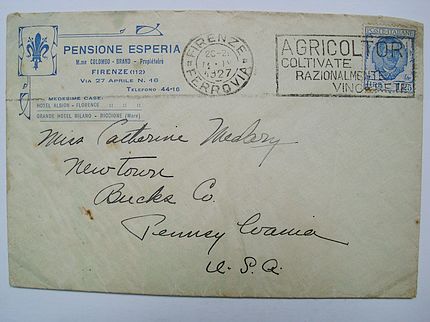 PENSIONE ESPERIA
M.me COLOMBO - BRAND - Propriétaire
FIRENZE (112)
VIA 27 APRILE N. 16
TELEFONO 44-16
MEDESIME CASE:
HOTEL ALBION - FLORENCE
GRANDE HOTEL MILANO - RICCIONE (Mare)
FIRENZE
20-21
1927
FERROVIA
AGRICOLTORI
COLTIVATE
RAZIONALMENTE
VINCERETE
POSTE ITALIANE
Miss Catherine Medary
Newtown
Bucks Co.
Pennsylvania
U.S.A